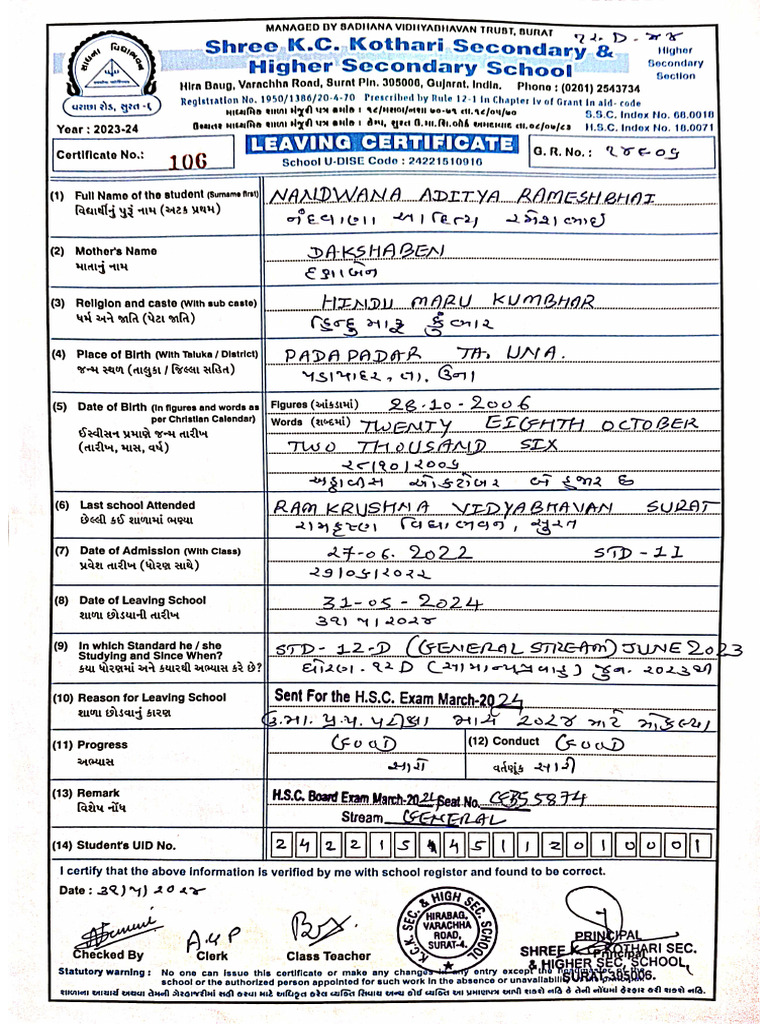 MANAGED BY SADHANA VIDHYABHAVAN TRUST, SURAT
Shree K.C. Kothari Secondary &
Higher Secondary School
Higher
Secondary
Section
Hira Baug, Varachha Road, Surat Pin. 395006, Gujarat, India. Phone : (0261) 2543734
Registration No. 1950/1386/20-4-70 Prescribed by Rule 12-1 in Chapter iv of Grant in aid- code
S.S.C. Index No. 68.0018
H.S.C. Index No. 18.0071
વરાછા રોડ, સુરત-૬
Year : 2023-24
LEAVING CERTIFICATE
Certificate No.: 106
School U-DISE Code : 24221510916
G. R. No.: ૨૪૯૦૬
(1) Full Name of the student (Surname first) NANDWANA ADITYA RAMESHBHAI
વિદ્યાર્થીનું પુરૂં નામ (અટક પ્રથમ) નંદવાણા આદિત્ય રમેશભાઈ
(2) Mother's Name DAKSHABEN
માતાનું નામ દક્ષાબેન
(3) Religion and caste (With sub caste) HINDU MARU KUMBHAR
ધર્મ અને જાતિ (પેટા જાતિ) હિન્દુ મારૂ કુંભાર
(4) Place of Birth (With Taluka / District) PADAPADAR TA. UNA.
જન્મ સ્થળ (તાલુકા / જિલ્લા સહિત) પડાપાદર, તા. ઉના
(5) Date of Birth (In figures and words as per Christian Calendar) Figures (આંકડામાં) 28.10-2006
ઈસ્વીસન પ્રમાણે જન્મ તારીખ (તારીખ, માસ, વર્ષ) Words (શબ્દમાં) TWENTY EIGHTH OCTOBER
TWO THOUSAND SIX
૨૮/૧૦/૨૦૦૬
અઠ્ઠાવીસ ઓક્ટોબર બે હજાર છ
(6) Last school Attended RAMKRUSHNA VIDYABHAVAN SURAT
છેલ્લી કઈ શાળામાં ભણ્યા રામકૃષ્ણ વિદ્યાભવન, સુરત
(7) Date of Admission (With Class) 27-06. 2022 STD-11
પ્રવેશ તારીખ (ધોરણ સાથે) ૨૭/૦૬/૨૦૨૨
(8) Date of Leaving School 31-05-2024
શાળા છોડયાની તારીખ ૩૧/૫/૨૦૨૪
(9) In which Standard he / she Studying and Since When? STD-12-D (GENERAL STREAM) JUNE 2023
કયા ધોરણમાં અને કયારથી અભ્યાસ કરે છે? ધોરણ. ૧૨ D (સામાન્યપ્રવાહ) જુન. ૨૦૨૩થી
(10) Reason for Leaving School Sent For the H.S.C. Exam March-2024
શાળા છોડવાનું કારણ ઉ.મા. પ્ર.પ. પરીક્ષા માર્ચ ૨૦૨૪ માટે મોકલ્યા
(11) Progress GOOD (12) Conduct GOOD
અભ્યાસ સારો વર્તણૂંક સારી
(13) Remark H.S.C. Board Exam March-2024 Seat No.
વિશેષ નોંધ Stream GENERAL
(14) Student's UID No. 2 4 2 2 1 5 4 5 1 1 2 0 1 0 0 0 1
I certify that the above information is verified by me with school register and found to be correct.
Date : ૩૧/૫/૨૦૨૪
K.C.K. SEC. & HIGH SEC. SCHOOL
HIRABAG,
VARACHHA
ROAD,
SURAT-4.
Checked By
Clerk
Class Teacher
Principal
PRINCIPAL
SHREE K.C. KOTHARI SEC.
& HIGHER SEC, SCHOOL,
SURAT-395006.
Statutory warning : No one can issue this certificate or make any changes in any entry except the
school or the authorized person appointed for such work in the absence or unavailability of